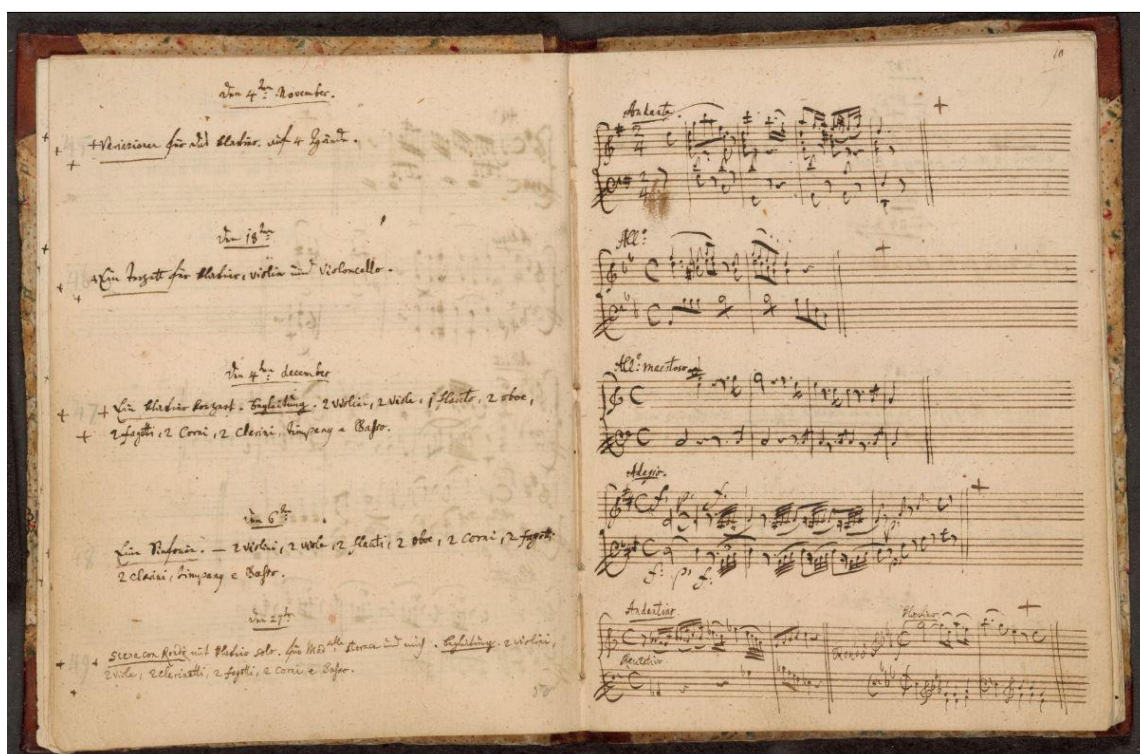 Den 4ten November.
Variazionen für das klavier. auf 4 Hände.
den 18ten
Ein Terzett für klavier, violin und violoncello.
den 4ten december
Ein klavier konzert. begleitung. 2 violini, 2 viole, 1 flauto, 2 oboe,
2 fagotti, 2 Corni, 2 Clarini, timpany e Baſso.
den 6ten
Eine Sinfonie. — 2 violini, 2 viole, 2 flauti, 2 oboe, 2 Corni, 2 fagotti
2 clarini, timpany e Baſso.
den 27ten
Scena con Rondò mit klavier solo. für Madselle Storace und mich. begleitung. 2 violini,
2 viole, 2 clarinetti, 2 fagotti, 2 corni e Baſso.
58
10
Andante.
2 4
2 4
All:o
All:o maestoso
Adagio.
f: p: f:
f: p: f:
Andantino
Recitativo
Rondò